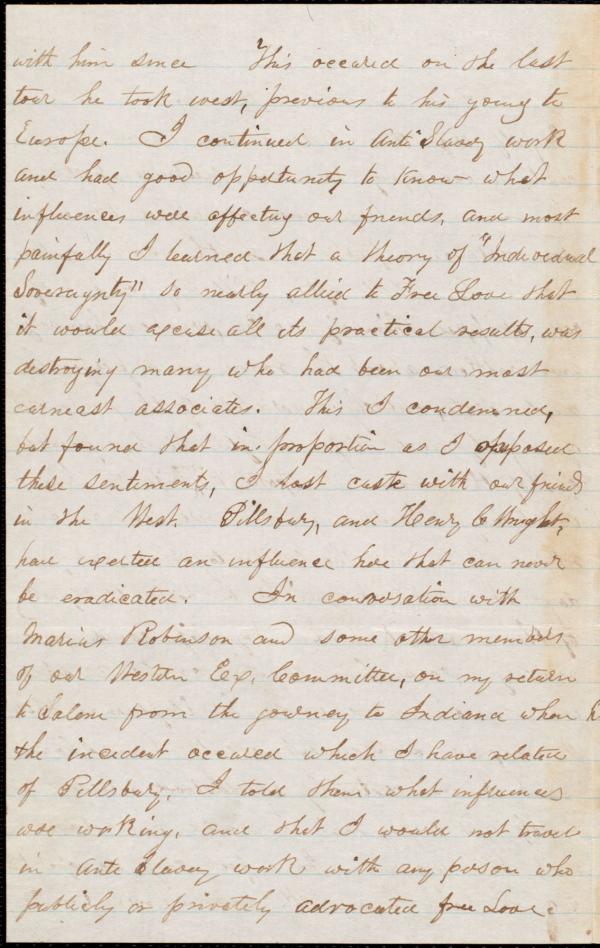 with him since This occured on the last
tour he took west, previous to his going to
Europe. I continued in Anti Slavery work
and had good oppertunity to know what
influences were affecting our friends, and most
painfully I learned that a theory of "Individual
Sovereignty" so nearly allied to Free Love that
it would excuse all its practical results, was
destroying many who had been our most
earneast associates. This I condemned,
but found that in proportion as I opposed
these sentiments, I lost caste with our friends
in the West. Pillsbury, and Henry C Wright,
have exerted an influence here that can never
be eradicated. In conversation with
Marius Robinson and some other members
of our Western Ex. Committee, on my return
to Salem from the journey to Indiana when
the incident occured which I have related
of Pillsbury, I told them what influences
were working, and that I would not travel
in Anti Slavery work with any person who
publicly or privately advocated free Love.